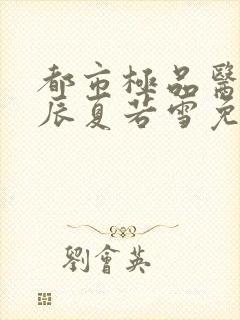 都市極品醫
辰夏若雪免
劉會英